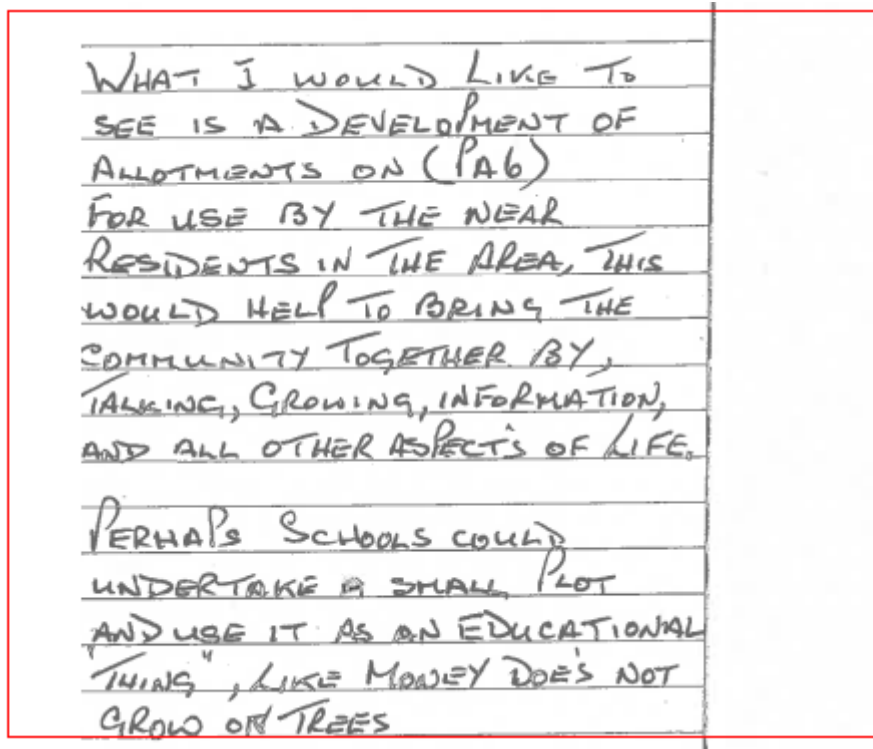 WHAT I WOULD LIKE TO
SEE IS A DEVELOPMENT OF
ALLOTMENTS ON (PA6)
FOR USE BY THE NEAR
RESIDENTS IN THE AREA, THIS
WOULD HELP TO BRING THE
COMMUNITY TOGETHER BY,
TALKING, GROWING, INFORMATION,
AND ALL OTHER ASPECT'S OF LIFE.
PERHAPS SCHOOLS COULD
UNDERTAKE A SMALL PLOT
AND USE IT AS AN EDUCATIONAL
"THING", LIKE MONEY DOE'S NOT
GROW ON TREES